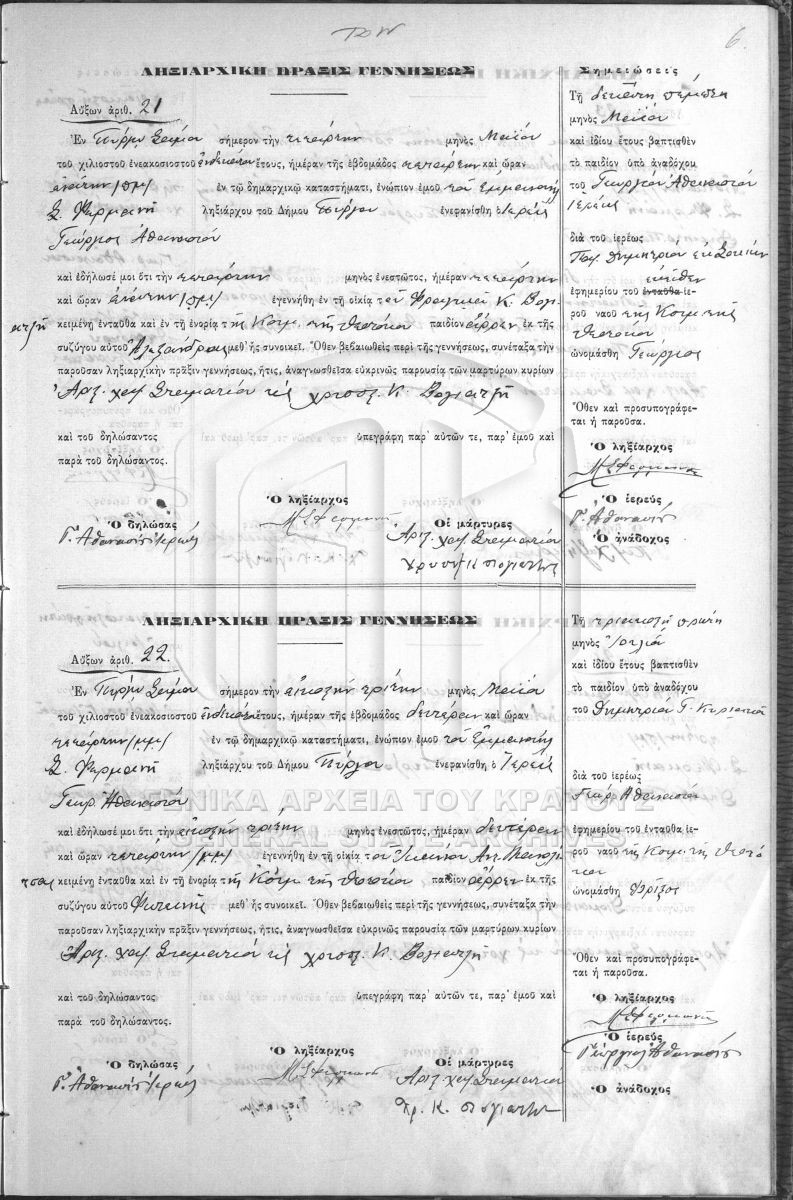 6.
ΛΗΞΙΑΡΧΙΚΗ ΠΡΑΞΙΣ ΓΕΝΝΗΣΕΩΣ
Αὔξων ἀριθ. 21
Ἐν Πύργῳ Σάμου σήμερον τὴν τετάρτην μηνὸς Μαΐου
τοῦ χιλιοστοῦ ἐνεακοσιοστοῦ ἑνδεκάτου ἔτους, ἡμέραν τῆς ἑβδομάδος τετάρτην καὶ ὥραν
ἐνάτην /πμ/ ἐν τῷ δημαρχικῷ καταστήματι, ἐνώπιον ἐμοῦ τοῦ Ἐμμανουὴλ
Σ. Φερμανῆ ληξιάρχου τοῦ Δήμου Πύργου ἐνεφανίσθη ὁ Ἱερεὺς
Γεώργιος Ἀθανασίου
καὶ ἐδήλωσέ μοι ὅτι τὴν τετάρτην μηνὸς ἐνεστῶτος, ἡμέραν τετάρτην
καὶ ὥραν ἐνάτην /πμ/ ἐγεννήθη ἐν τῇ οἰκίᾳ τοῦ Φραγκιᾶ Κ. Βογι
ατζῆ κειμένῃ ἐνταῦθα καὶ ἐν τῇ ἐνορίᾳ τῆς Κοιμ. τῆς Θεοτόκου παιδίον ἄρρεν ἐκ τῆς
συζύγου αὐτοῦ Ἀλεξάνδρας μεθ' ἧς συνοικεῖ. Ὅθεν βεβαιωθεὶς περὶ τῆς γεννήσεως, συνέταξα τὴν
παροῦσαν ληξιαρχικὴν πρᾶξιν γεννήσεως, ἥτις, ἀναγνωσθεῖσα εὐκρινῶς παρουσίᾳ τῶν μαρτύρων κυρίων
Ἀρζ. χαζ Σταματίου καὶ Χρυσ. Κ. Βογιατζῆ
καὶ τοῦ δηλώσαντος ὑπεγράφη παρ' αὐτῶν τε, παρ' ἐμοῦ καὶ
παρὰ τοῦ δηλώσαντος.
Ὁ ληξίαρχος
Ὁ δηλώσας Μ Σ Φερμανῆς Οἱ μάρτυρες
Γ. Ἀθανασίου Ἱερεύς Ἀρζ. χαζ. Σταματίου
Χρυσ. Κ Βογιατζῆς
Σημειώσεις
Τῇ δεκάτῃ πέμπτῃ
μηνὸς Μαΐου
καὶ ἰδίου ἔτους βαπτισθὲν
τὸ παιδίον ὑπὸ ἀναδόχου
τοῦ Γεωργίου Ἀθανασίου
Ἱερέως
διὰ τοῦ ἱερέως
ἐκεῖθεν
ἐφημερίου τοῦ ἐνταῦθα ἱε-
ροῦ ναοῦ τῆς Κοιμ τῆς
Θεοτόκου
ὠνομάσθη Γεώργιος
Ὅθεν καὶ προσυπογράφε-
ται ἡ παροῦσα.
Ὁ ληξίαρχος
Μ Σ Φερμανῆς
Ὁ ἱερεύς
Γ. Ἀθανασίου
Ὁ ἀνάδοχος
ΛΗΞΙΑΡΧΙΚΗ ΠΡΑΞΙΣ ΓΕΝΝΗΣΕΩΣ
Αὔξων ἀριθ. 22.
Ἐν Πύργῳ Σάμου σήμερον τὴν εἰκοστὴν τρίτην μηνὸς Μαΐου
τοῦ χιλιοστοῦ ἐνεακοσιοστοῦ ἑνδεκάτου ἔτους, ἡμέραν τῆς ἑβδομάδος δευτέραν καὶ ὥραν
τετάρτην /μμ/ ἐν τῷ δημαρχικῷ καταστήματι, ἐνώπιον ἐμοῦ τοῦ Ἐμμανουὴλ
Σ. Φερμανῆ ληξιάρχου τοῦ Δήμου Πύργου ἐνεφανίσθη ὁ Ἱερεὺς
Γεωρ. Ἀθανασίου
καὶ ἐδήλωσέ μοι ὅτι τὴν εἰκοστὴν τρίτην μηνὸς ἐνεστῶτος, ἡμέραν δευτέραν
καὶ ὥραν τετάρτην /μμ/ ἐγεννήθη ἐν τῇ οἰκίᾳ τοῦ Ἰωάννου
κειμένῃ ἐνταῦθα καὶ ἐν τῇ ἐνορίᾳ τῆς Κοιμ. τῆς Θεοτόκου παιδίον ἄρρεν ἐκ τῆς
συζύγου αὐτοῦ Φωτεινῆς μεθ' ἧς συνοικεῖ. Ὅθεν βεβαιωθεὶς περὶ τῆς γεννήσεως, συνέταξα τὴν
παροῦσαν ληξιαρχικὴν πρᾶξιν γεννήσεως, ἥτις, ἀναγνωσθεῖσα εὐκρινῶς παρουσίᾳ τῶν μαρτύρων κυρίων
Ἀρζ. χαζ Σταματίου καὶ Χρυσ. Κ. Βογιατζῆ
καὶ τοῦ δηλώσαντος ὑπεγράφη παρ' αὐτῶν τε, παρ' ἐμοῦ καὶ
παρὰ τοῦ δηλώσαντος.
Ὁ ληξίαρχος
Ὁ δηλώσας Μ Σ Φερμανῆς Οἱ μάρτυρες
Γ. Ἀθανασίου Ἱερεύς Ἀρζ. χαζ. Σταματίου
Χρ. Κ. Βογιατζῆς
Τῇ τριακοστῇ πρώτῃ
μηνὸς Ἰουλίου
καὶ ἰδίου ἔτους βαπτισθὲν
τὸ παιδίον ὑπὸ ἀναδόχου
τοῦ Δημητρίου Γ.
διὰ τοῦ ἱερέως
Γεωρ. Ἀθανασίου
ἐφημερίου τοῦ ἐνταῦθα ἱε-
ροῦ ναοῦ τῆς Κοιμ τῆς Θεοτό
κου
ὠνομάσθη Φρίξος
Ὅθεν καὶ προσυπογράφε-
ται ἡ παροῦσα.
Ὁ ληξίαρχος
Μ Σ Φερμανῆς
Ὁ ἱερεύς
Γεώργιος Ἀθανασίου
Ὁ ἀνάδοχος
ΓΕΝΙΚΑ ΑΡΧΕΙΑ ΤΟΥ ΚΡΑΤΟΥΣ
GENERAL STATE ARCHIVES